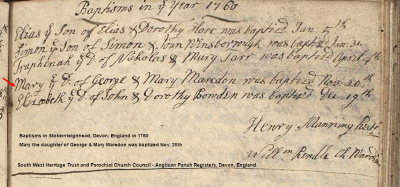 Baptisms in yͤ Year 1760
Elias yͤ Son of Elias & Dorothy Hore was baptized Jan: 5th
Simon yͤ Son of Simon & Ann Winsborough was baptiz Jan: 31
of Nicholas & Mary Tarr was baptized April 7th
Mary yͤ D. of George & Mary Maredon was baptized Nov. 20th
Elizabeth yͤ D. of John & Dorothy Bowden was baptized Dec 19th
Henry Manning
Baptisms in Stokeinteignhead, Devon, England in 1760
Mary the daughter of George & Mary Maredon was baptized Nov. 20th
Willm Rendle Ch Wardn
South West Heritage Trust and Parochial Church Council - Anglican Parish Registers, Devon, England